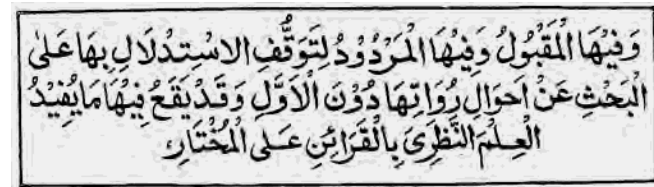 وَفِيْهَا الْمَقْبُوْلُ وَفِيْهَا الْمَرْدُوْدُ لِتَوَقُّفِ الاسْتِدْلَالِ بِهَا عَلىٰ
الْبَحْثِ عَنْ اَحْوَالِ رُوَاتِهَا دُوْنَ الْاَوَّلِ وَقَدْ يَقَعُ فِيْهَا مَا يُفِيْدُ
الْعِلْمَ النَّظَرِىَّ بِالْقَرَائِنِ عَلى الْمُخْتَارِ